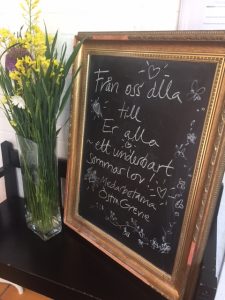 Från oss alla
till
Er alla
ett underbart
Sommarlov!
Medarbetarna
Östra Grevie